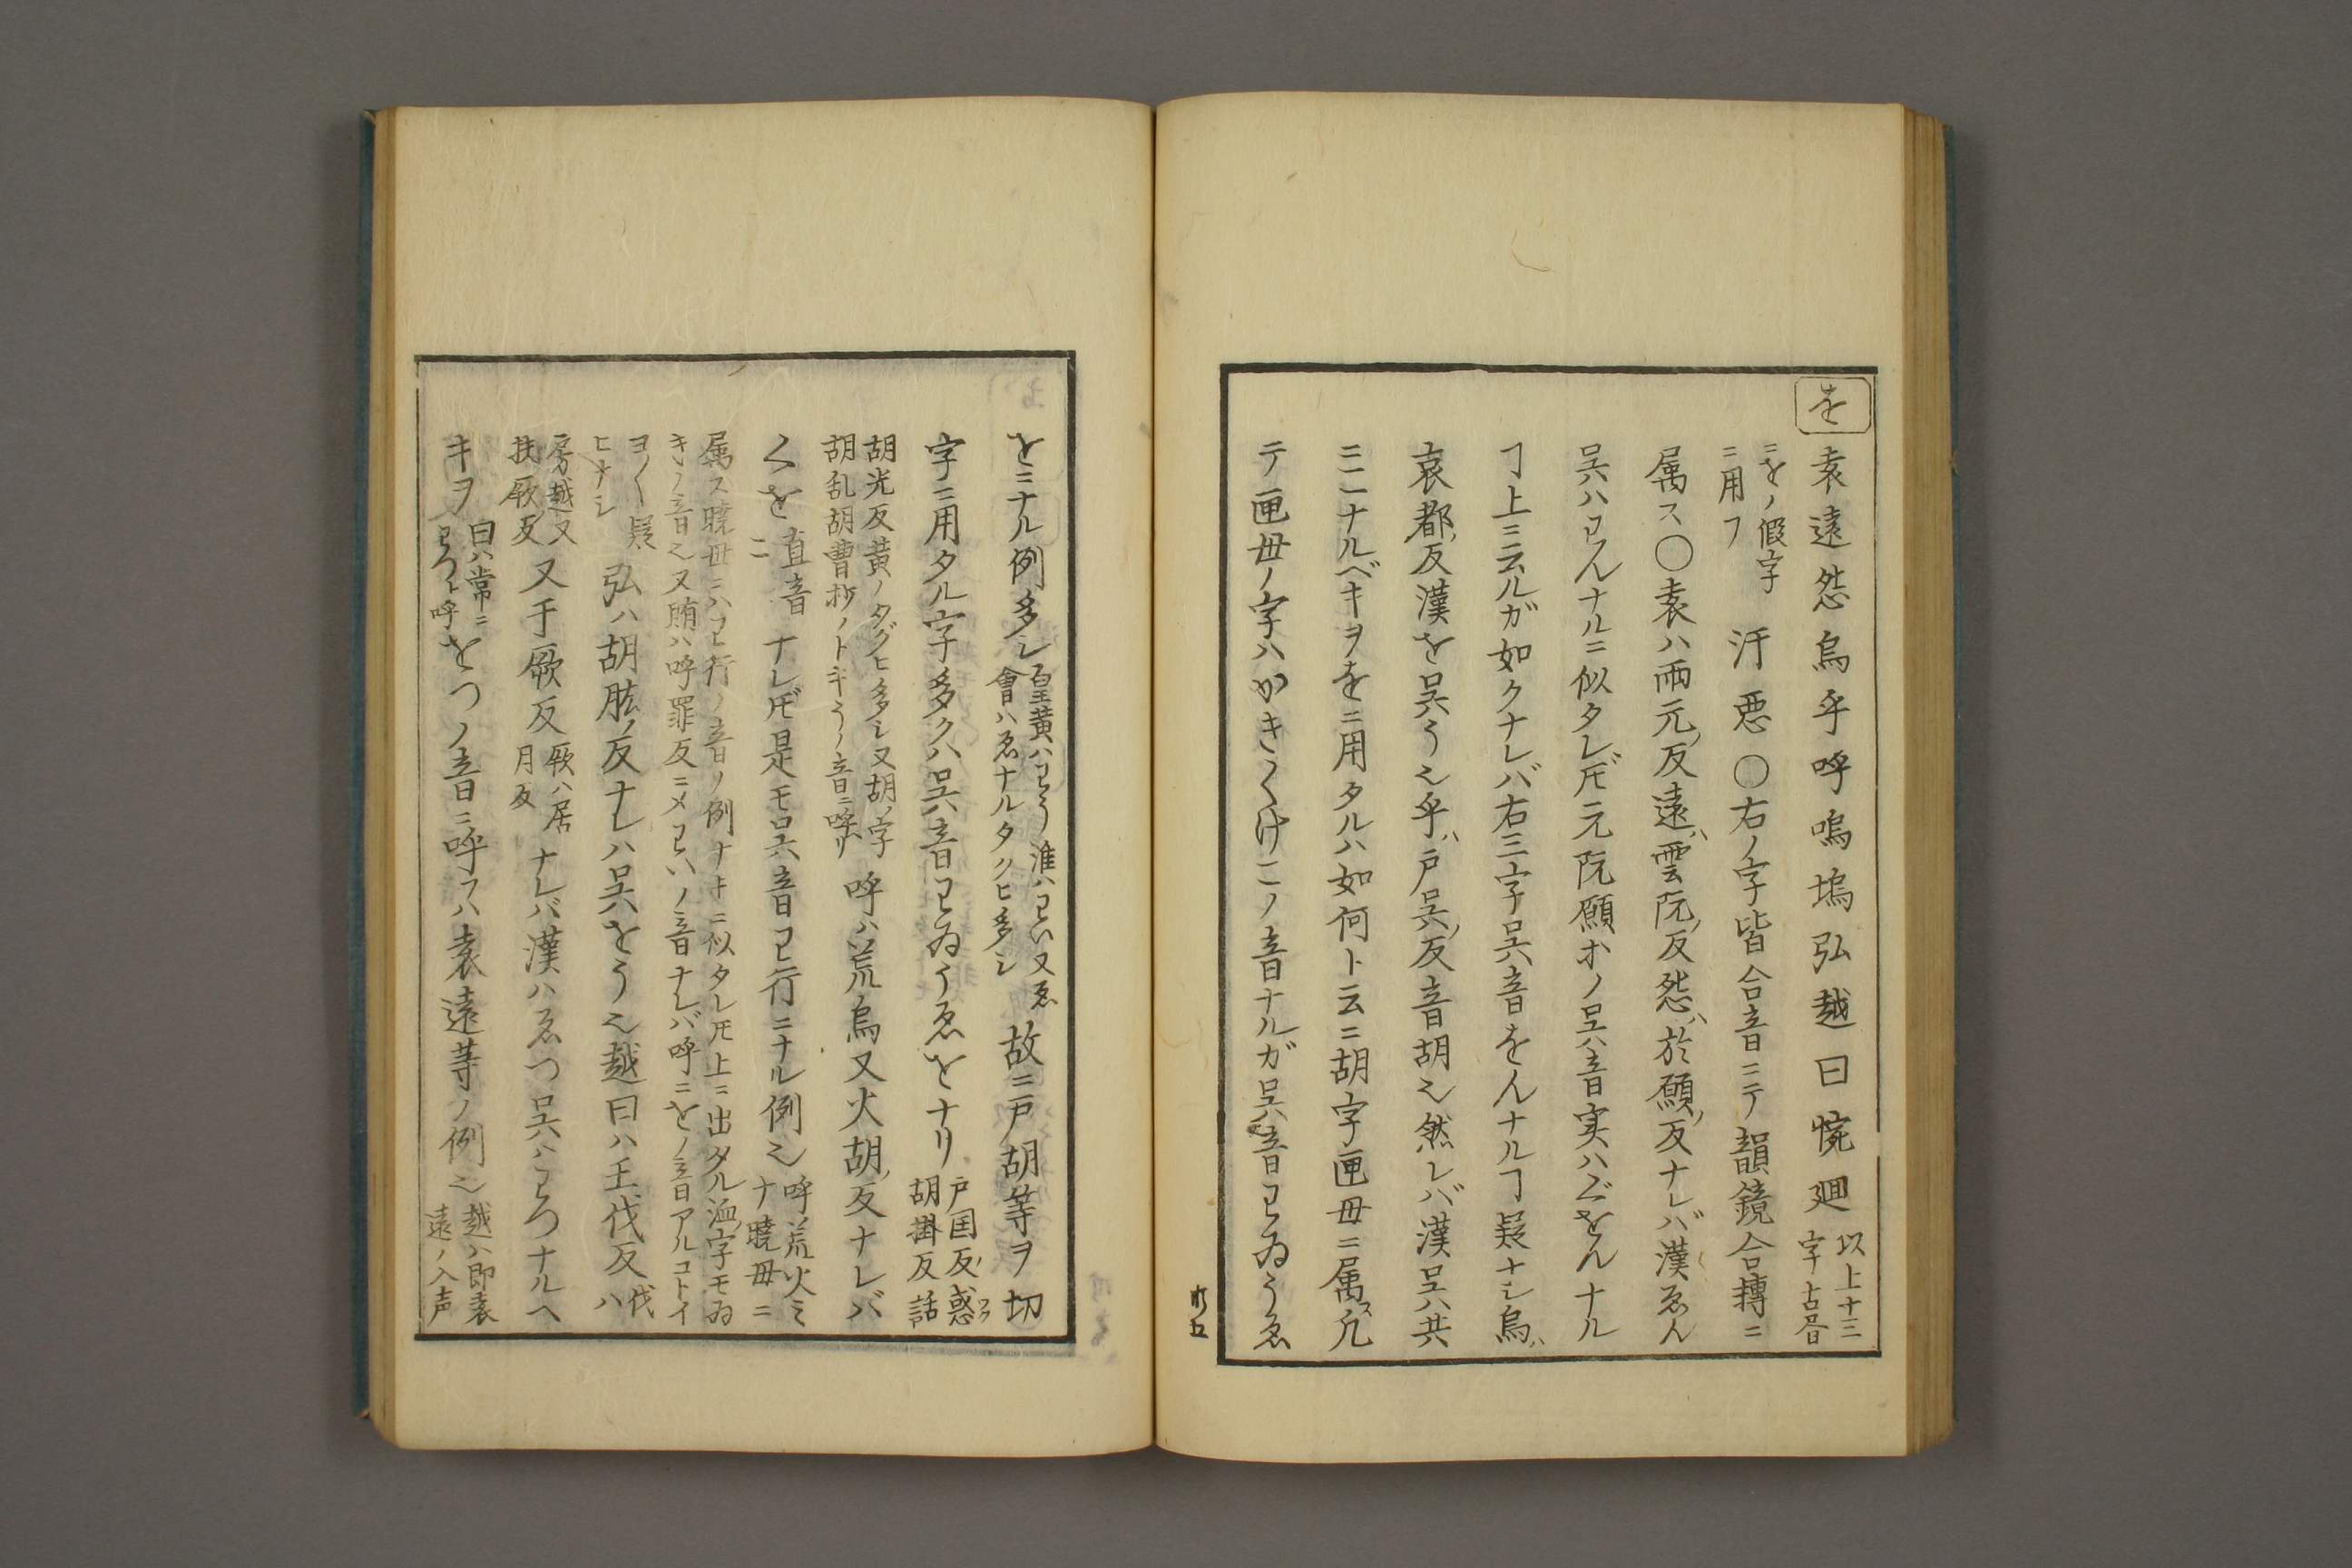 を
袁遠怨烏乎呼嗚塢弘越曰惋廻 以上十三字古書
ニをノ假字ニ用フ 汙惡〇右ノ字皆合音ニテ韻鏡合轉ニ
属ス〇袁ハ雨元ノ反遠ハ雲阮ノ反怨ハ於願ノ反ナレバ漢ゑん
呉ハわんナルニ似タレ𪜈元阮願才ノ呉音実ハぐをんナル
ヿ上ニ云ルガ如クナレバ右三字呉音をんナルヿ疑ナシ烏ハ
哀都ノ反漢を呉う也乎ハ戸呉ノ反音胡也然レバ漢呉共
ニこナルベキヲをニ用タルハ如何ト云ニ胡字匣母ニ属ス凡
テ匣母ノ字ハかきくけこノ音ナルガ呉音わゐうゑ
をニナル例多シ 皇黄ハわう淮ハわい又ゑ會ハゑナルタクヒ多シ 故ニ戸胡等ヲ切
字ニ用タル字多クハ呉音わゐうゑをナリ 戸国ノ反惑ワク胡掛反話
胡光反黄ノタグヒ多シ又胡ノ字胡乱胡曹抄ノトキうノ音ニ呼リ 呼ハ荒烏又火胡ノ反ナレバ
くを 直音ニ ナレ𪜈是モ呉音わ行ニナル例也 呼荒火ミナ曉毋ニ
属ス曉毋ニハわ行ノ音ノ例ナキニ似タレ𪜈上ニ出タル洫字モゐ
キノ音也又賄ハ呼罪反ニメわいノ音ナレバ呼ニをノ音アルコトイ
ヨ〱疑ヒナシ 弘ハ胡肱ノ反ナレハ呉をう也越曰ハ王伐反 伐ハ
房越又扶厥ノ反 又于厥反 厥ハ居月反 ナレバ漢ハゑつ呉ハわつナルヘ
キヲ 曰ハ常ニわつト呼 をつノ音ニ呼フハ袁遠等ノ例也 越ハ即袁遠ノ入声